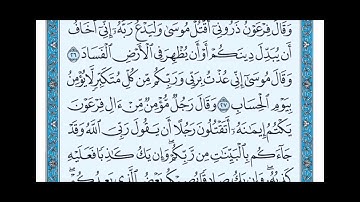 وَقَالَ فِرْعَوْنُ ذَرُونِىٓ أَقْتُلْ مُوسَىٰ وَلْيَدْعُ رَبَّهُۥٓ ۖ إِنِّىٓ أَخَافُ
أَن يُبَدِّلَ دِينَكُمْ أَوْ أَن يُظْهِرَ فِى ٱلْأَرْضِ ٱلْفَسَادَ ٢٦
وَقَالَ مُوسَىٰٓ إِنِّى عُذْتُ بِرَبِّى وَرَبِّكُم مِّن كُلِّ مُتَكَبِّرٍ لَّا يُؤْمِنُ
بِيَوْمِ ٱلْحِسَابِ ٢٧ وَقَالَ رَجُلٌ مُّؤْمِنٌ مِّنْ ءَالِ فِرْعَوْنَ
يَكْتُمُ إِيمَٰنَهُۥٓ أَتَقْتُلُونَ رَجُلًا أَن يَقُولَ رَبِّىَ ٱللَّهُ وَقَدْ
جَآءَكُم بِٱلْبَيِّنَٰتِ مِن رَّبِّكُمْ ۖ وَإِن يَكُ كَٰذِبًا فَعَلَيْهِ
كَذِبُهُۥ ۖ وَإِن يَكُ صَادِقًا يُصِبْكُم بَعْضُ ٱلَّذِى يَعِدُكُمْ ۖ